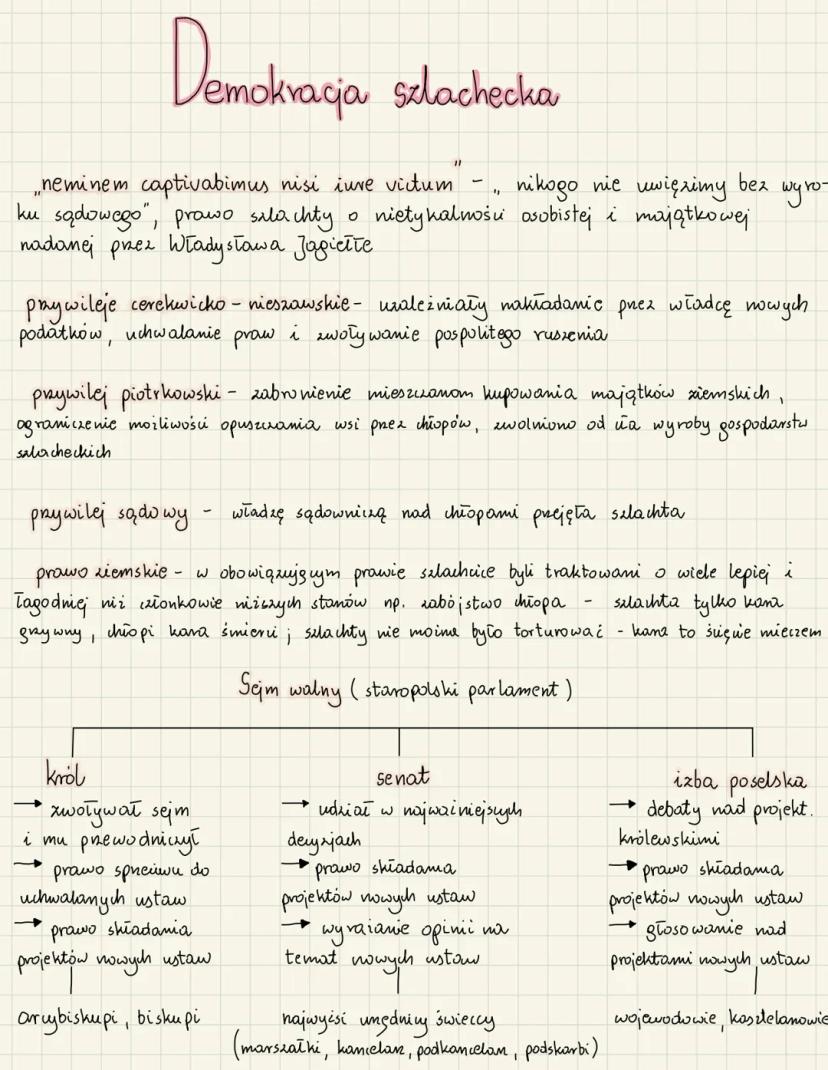 Demokracja szlachecka
„neminem captivabimus nisi iure victum" - „ nikogo nie uwięzimy bez wyro-
ku sądowego", prawo szlachty o nietykalności osobistej i majątkowej
nadanej przez Władysława Jagiełłe
przywileje cerekwicko - nieszawskie - uzależniały nakładanie przez władcę nowych
podatków, uchwalanie praw i zwoływanie pospolitego ruszenia
przywilej piotrkowski - zabronienie mieszczanom kupowania majątków ziemskich,
ograniczenie możliwości opuszczania wsi przez chłopów, zwolniono od cła wyroby gospodarstw
szlacheckich
przywilej sądowy - władzę sądowniczą nad chłopami przejęła szlachta
prawo ziemskie - w obowiązującym prawie szlachcice byli traktowani o wiele lepiej i
łagodniej niż członkowie niższych stanów np. zabójstwo chłopa - szlachta tylko kara
grzywny, chłopi kara śmierci; szlachty nie można było torturować - kara to ścięcie mieczem
Sejm walny ( staropolski parlament )
król senat izba poselska
→ zwoływał sejm → udział w najważniejszych → debaty nad projekt.
i mu przewodniczył decyzjach królewskimi
→ prawo sprzeciwu do → prawo składania → prawo składania
uchwalanych ustaw projektów nowych ustaw projektów nowych ustaw
→ prawo składania → wyrażanie opinii na → głosowanie nad
projektów nowych ustaw temat nowych ustaw projektami nowych ustaw
arcybiskupi, biskupi najwyżsi urzędnicy świeccy wojewodowie, kasztelanowie
(marszałki, kanclerz, podkanclerz, podskarbi)